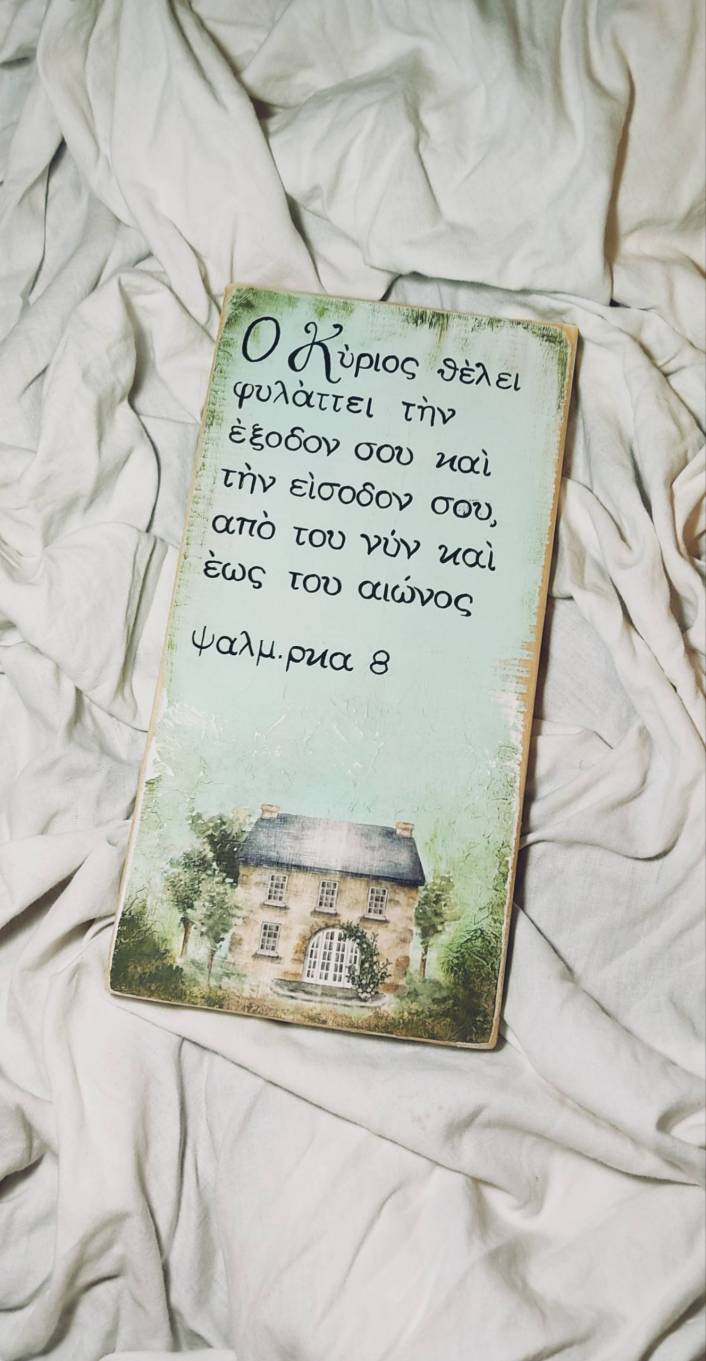 Ο Κὺριος θὲλει
φυλὰττει τὴν
ὲξοδον σου καὶ
τὴν εὶσοδον σου,
απὸ του νύν καὶ
ὲως του αιώνος
ψαλμ.ρκα 8